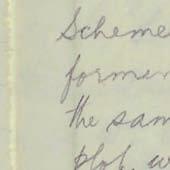 Scheme
former
the sam
plot, w